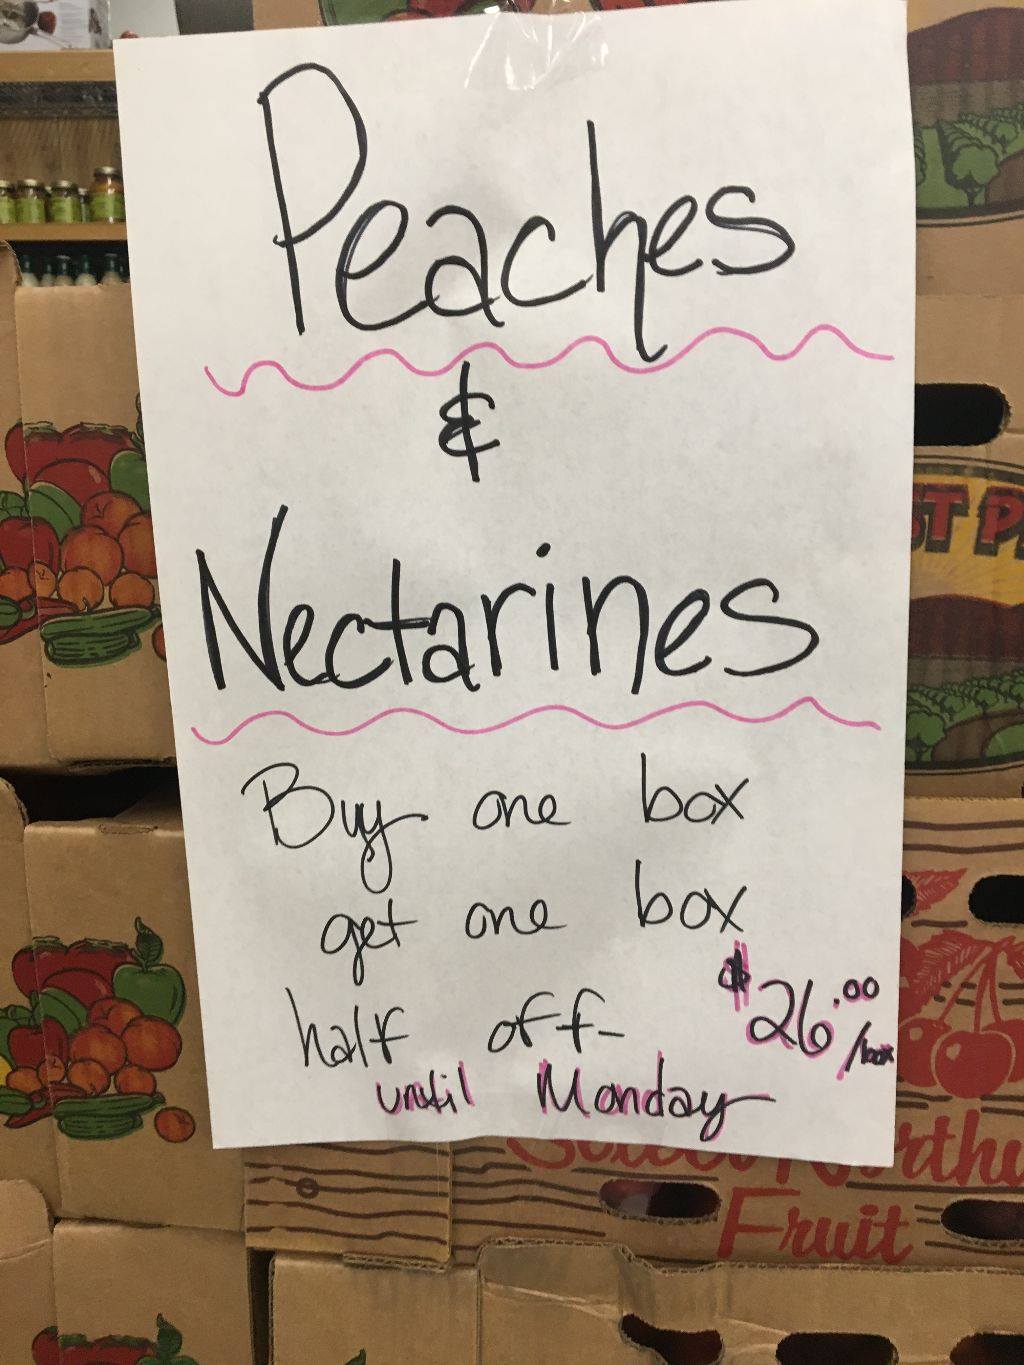 Peaches
&
Nectarines
Buy one box
get one box
half off- $26.00/box
until Monday
ST P
Fruit